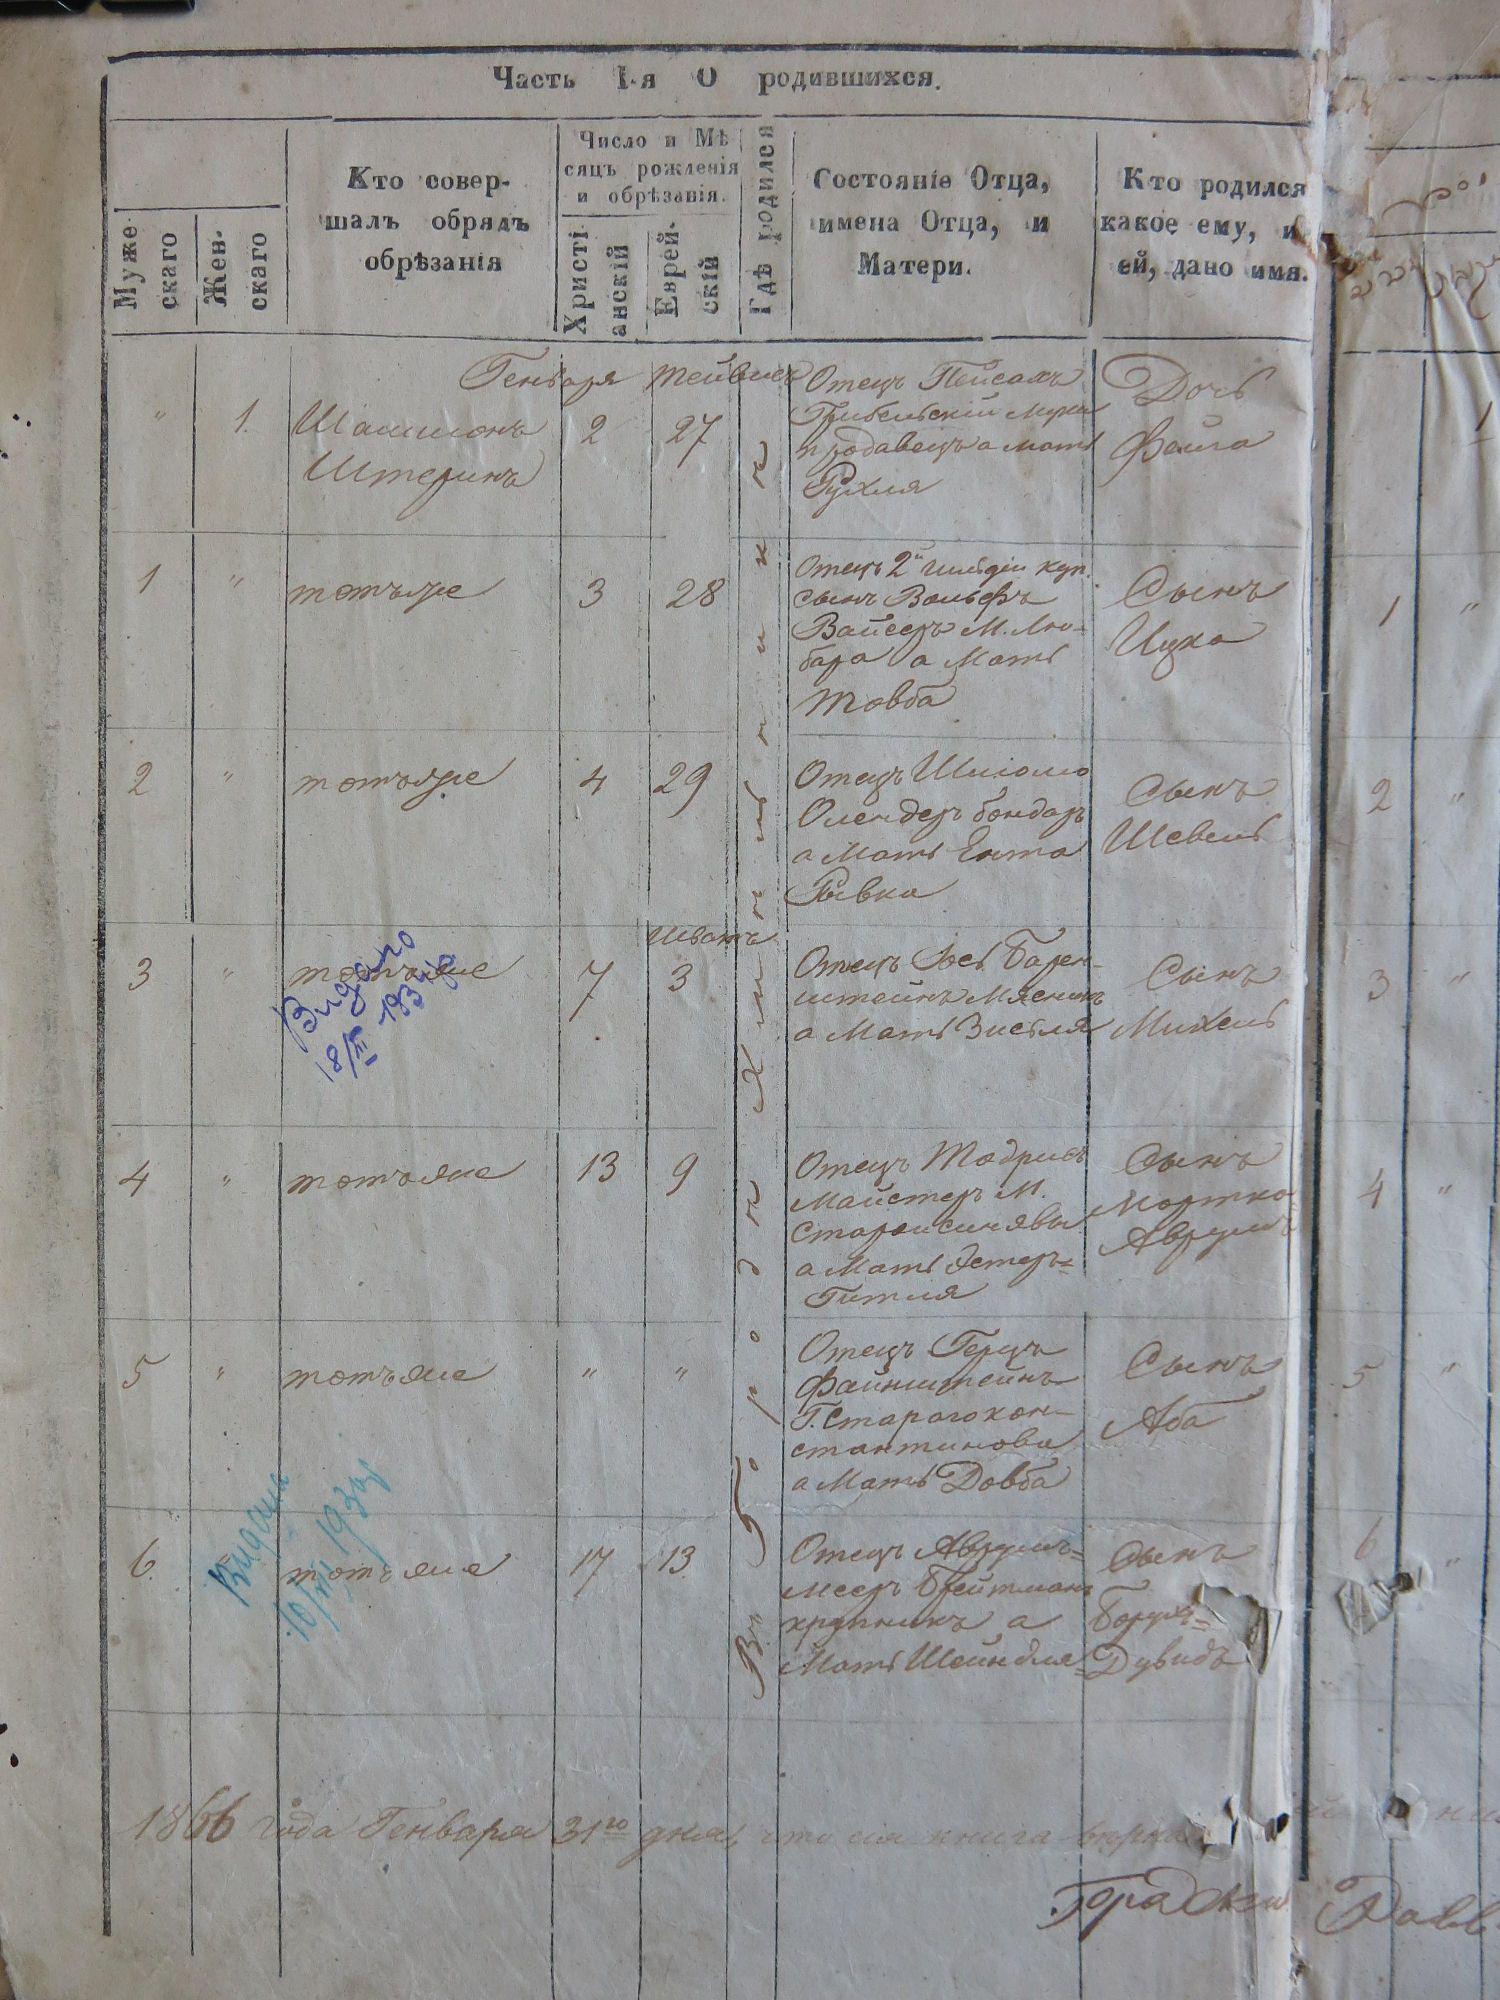 Часть I-я О родившихся.
Муже-
скаго
Жен-
скаго
Кто совер-
шалъ обрядъ
обрѣзанія
Число и Мѣ
сяцъ рожденія
и обрѣзанія.
Христі
анскій
Еврей-
скій
Гдѣ родился
Состояніе Отца,
имена Отца, и
Матери.
Кто родился
какое ему, и
ей, дано имя.
Генваря Тейвисъ
" 1. Шамшонъ
Штеринъ
2 27
Отецъ Пейсахъ
продавецъ а Мать
Рухля
Дочь
Файга
1
1 " тотъже 3 28
Отецъ 2й гильдіи куп.
сынъ Вольфъ
Вайсеръ М. Лю-
бара а Мать
Товба
Сынъ
Ицко
1 "
2 " тотъже 4 29
Отецъ Шліома
Олендеръ бондаръ
а Мать Ента
Рывка
Сынъ
Шевель
2 "
Шватъ
3 " тотъже 7 3
Отецъ Іось Барен-
штейнъ Мясникъ
а Мать Зисля
Сынъ
Михель
3 "
Видано
18/III 193
4 " тотъже 13 9
Отецъ Тодрисъ
Майстеръ М.
Старойсинявы
а Мать Эстеръ=
Гитля
Сынъ
Мортко
Аврумъ
4 "
5 " тотъже " "
Отецъ Герцъ
Файнштейнъ
Г. Старогокон-
стантинова
а Мать Довба
Сынъ
Аба
5 "
Видана
6. " тотъже 17 13.
Отецъ Аврумъ=
Мееръ Брейтманъ
крупникъ а
Мать Шейндля
Сынъ
Борухъ=
Дувидъ
6 "
Въ Городѣ
1866 года Генваря 31го дня, что сія книга